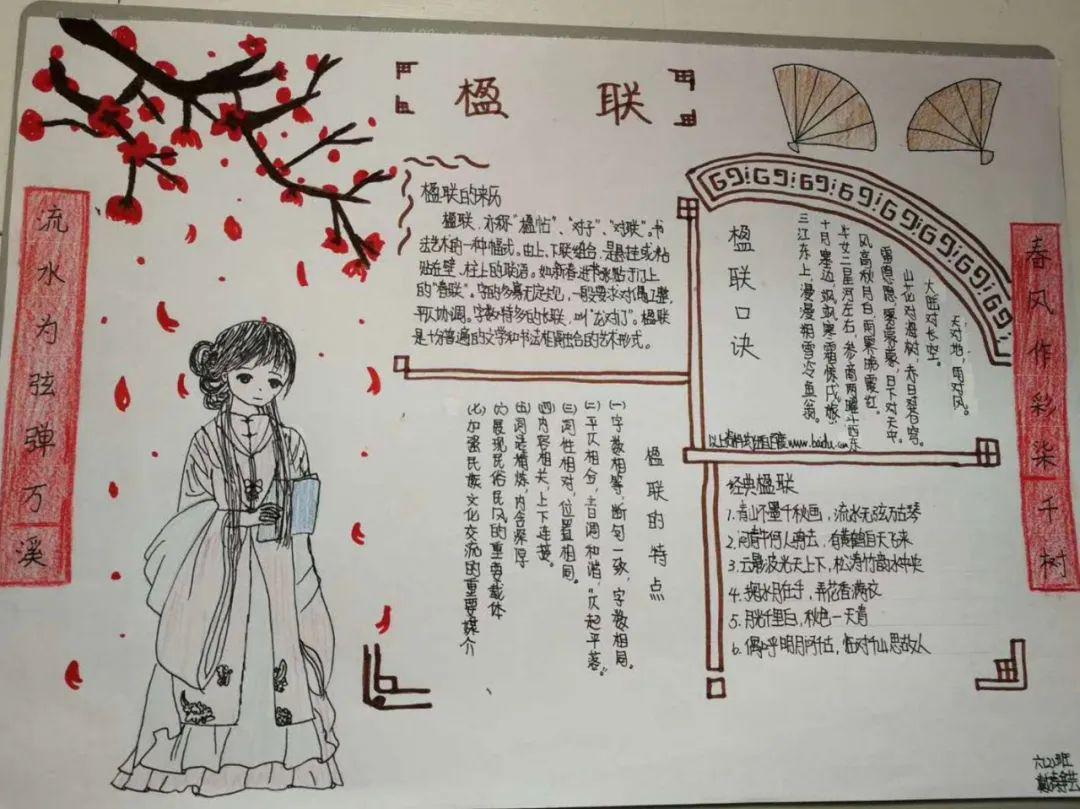 楹 联
流水为弦弹万溪
春风作彩柒千树
楹联的来历
楹联,亦称"楹帖"、"对子"、"对联"。书
法艺术的一种幅式。由上、下联组合,是悬挂或粘
贴在壁、柱上的联语。如新春进张贴于门上
的"春联"。字的多寡无定规,一般要求对偶工整,
平仄协调。字数特多的长联,叫"龙对门"。楹联
是十分普遍的文学和书法相融合的艺术形式。
楹联口诀
天对地,雨对风。
大陆对长空。
山花对海树,赤日对苍穹。
雷隐隐,雾蒙蒙,日下对天中。
风高秋月白,雨霁晚霞红。
牛女二星河左右,参商两曜斗西东
十月塞边,飒飒寒霜惊戍旅,
三江东上,漫漫朔雪冷鱼翁。
www.baidu.cn
楹联的特点
(一)字数相等,断句一致,字数相同。
(二)平仄相合,音调和谐,"仄起平落"。
(三)词性相对,位置相同。
(四)内容相关,上下连接。
(五)词语精炼,内含深厚
(六)展现民俗民风的重要载体
(七)加强民族文化交流的重要媒介
经典楹联
1.青山不墨千秋画,流水无弦万古琴
2.问青牛何人骑去,有黄鹤自天飞来
3.云影波光天上下,松涛竹韵水中央
4.掬水月在手,弄花香满衣
5.月光千里白,秋色一天青
6.偶呼明月问千古,临对千山思故人